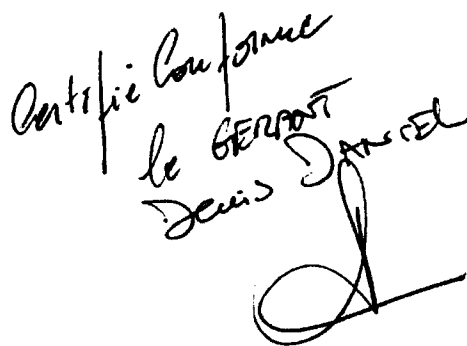 Certifié Conforme
le GERANT
Denis DANIEL